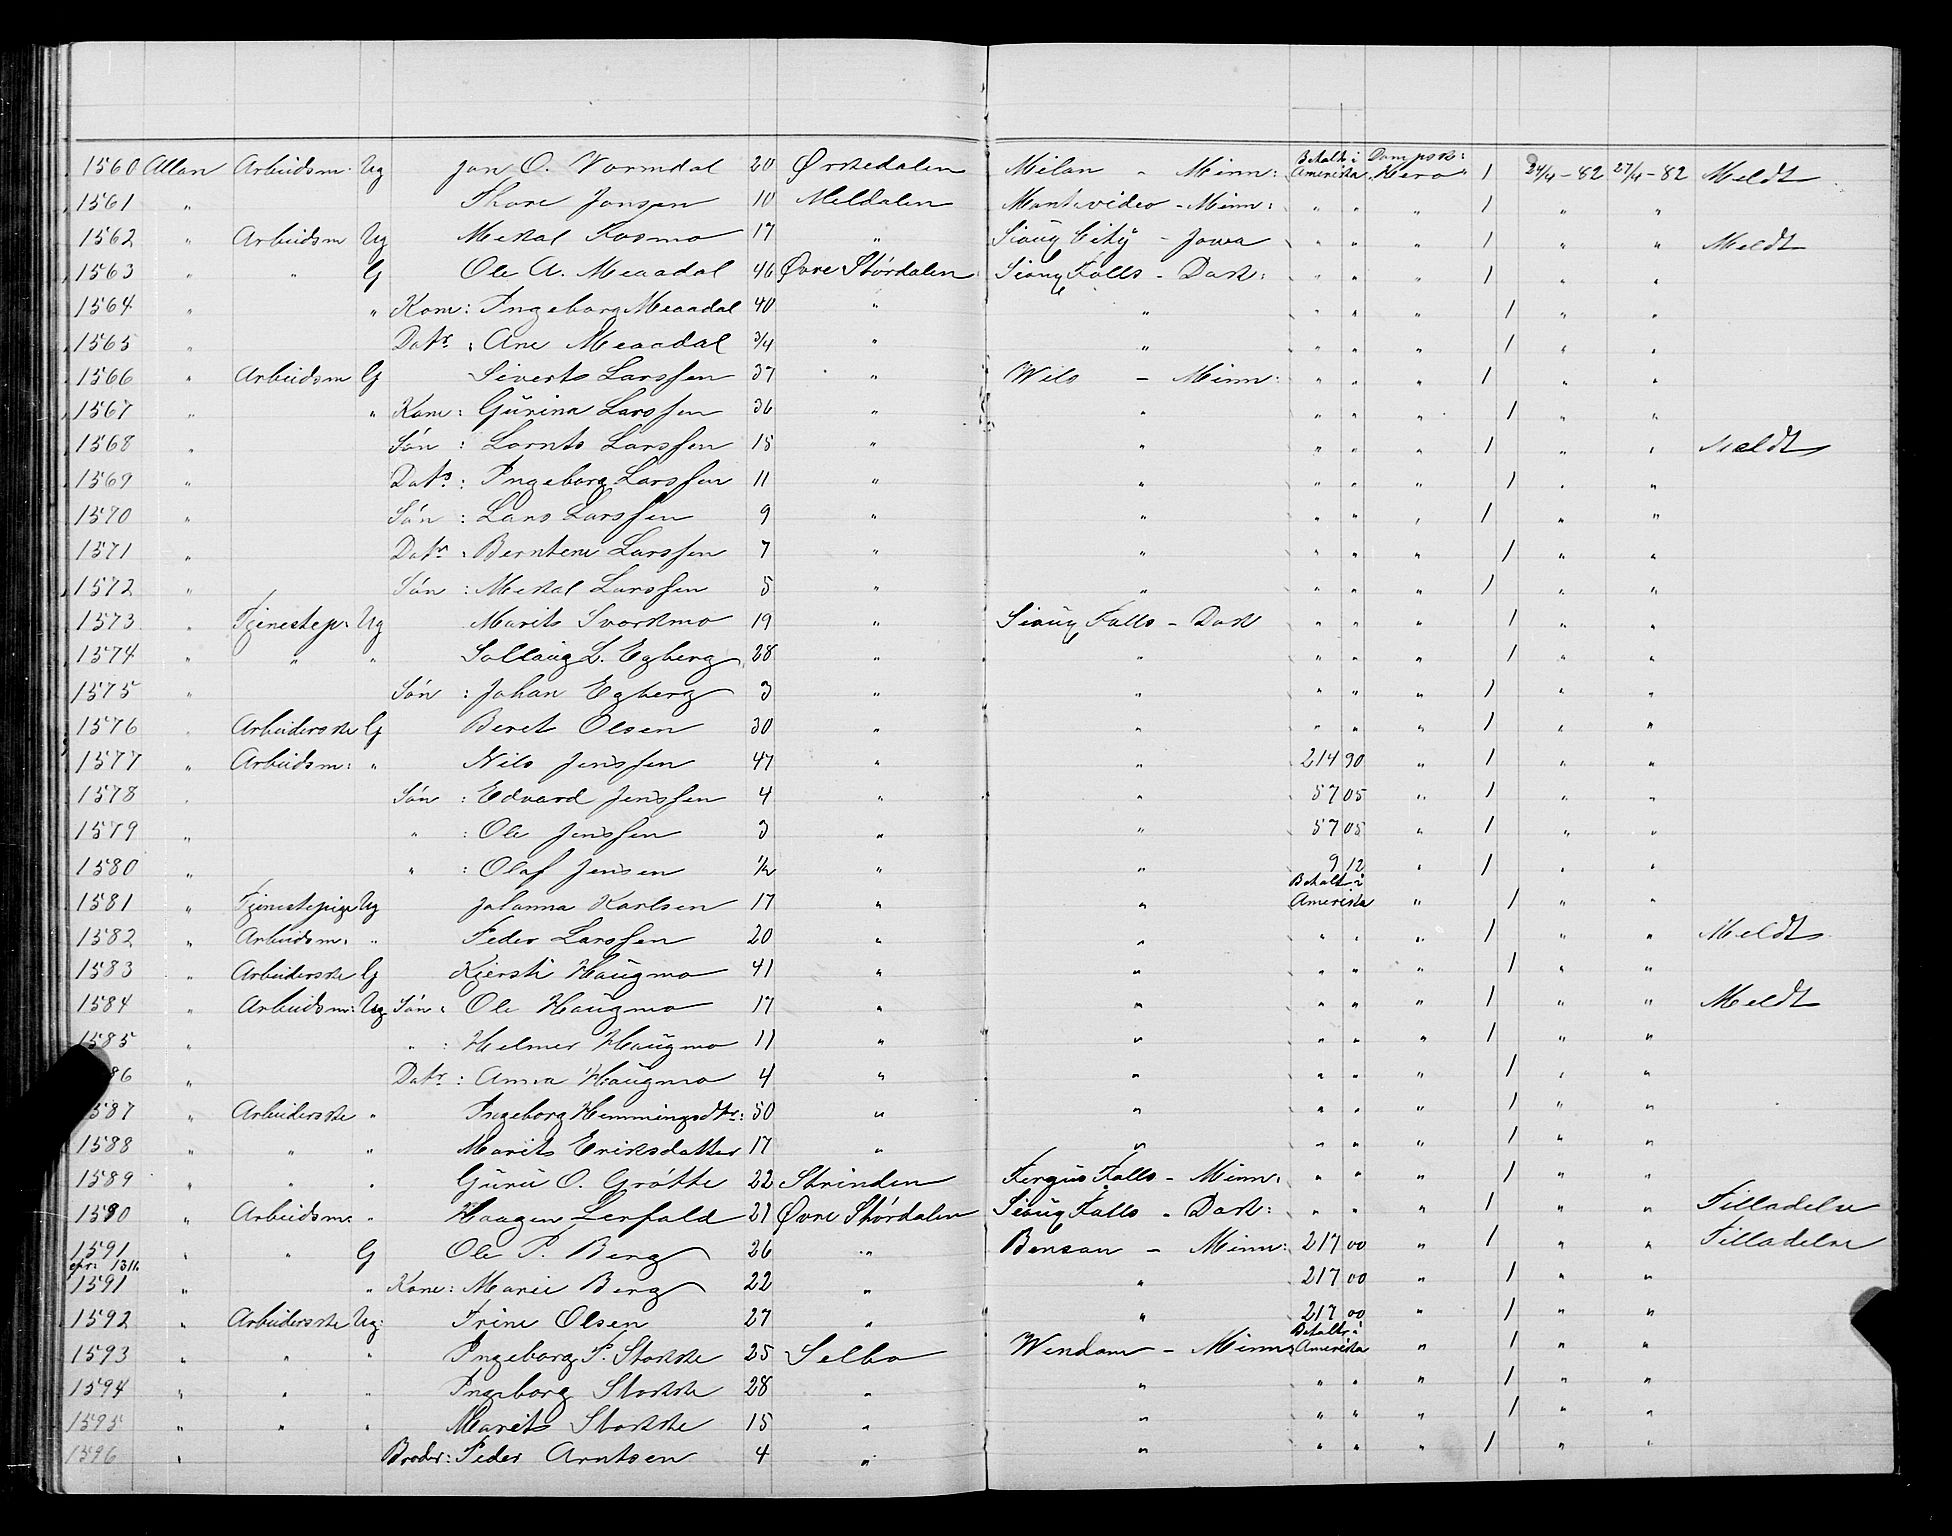 1560 Allan Arbeidsm. Ug Jon O. Wormdal 20 Ørkedalen Milan - Minn: Betalt i Amerika Dampsk: "Hero" 1 24/4 - 82 27/4 - 82 Meldt
1561 " Thore Jonsen 10 Meldalen Montevideo - Minn: " " " 1 " "
1562 " Arbeidsm Ug Mekal Kosmo 17 " Sioux City - Jowa " " " 1 " " Meldt
1563 " " G Ole A. Meaadal 46 Øvre Størdalen Sioux Falls - Dak: " " " 1 " "
1564 " " Kone: Ingeborg Meaadal 40 " " " " " 1 " "
1565 " Datr: Ane Meaadal 3/4 " " " " " 1 " "
1566 " Arbeidsm G Siverts Larssen 37 " Wils - Minn: " " " 1 " "
1567 " " Kone: Gurina Larssen 36 " " " " " 1 " "
1568 " Søn: Lornts Larssen 15 " " " " " 1 " " Meldt
1569 " Datr: Ingeborg Larssen 11 " " " " " 1 " "
1570 " Søn: Lars Larssen 9 " " " " " 1 " "
1571 " Datr: Berntine Larssen 7 " " " " " 1 " "
1572 " Søn: Mekal Larssen 5 " " " " " 1 " "
1573 " Tjenestep: Ug Marits Svorkmo 19 " Sioux Falls - Dak " " " 1 " "
1574 " " " Sollaug L. Egberg 28 " " " " " 1 " "
1575 " Søn: Johan Egberg 3 " " " " " 1 " "
1576 " Arbeiderske G Beret Olsen 30 " " " " " 1 " "
1577 " Arbeidsm: " Nils Jenssen 47 " " 214 90 " 1 " "
1578 " Søn: Edvard Jenssen 4 " " 57 05 " 1 " "
1579 " " : Ole Jenssen 3 " " 57 05 " 1 " "
1580 " " : Olaf Jensen 1/2 " " 9 12 " 1 " "
1581 " Tjenestepige Ug Johanna Karlsen 17 " " Betalt i Amerika " 1 " "
1582 " Arbeidsm. " Peder Larssen 20 " " " " " 1 " " Meldt
1583 " Arbeiderske G Kjersti Haugmo 41 " " " " " 1 " "
1584 " Arbeidsm: Ug Søn: Ole Haugmo 17 " " " " " 1 " " Meldt
1585 " " : Helmer Haugmo 11 " " " " " 1 " "
86 " Datr: Anna Haugmo 4 " " " " " 1 " "
587 " Arbeiderske " Ingeborg Hemmingsdtr: 50 " " " " " 1 " "
1588 " " " Marits Eriksdatter 17 " " " " " 1 " "
1589 " " " Guru O. Gråtte 22 Strinden Fergus Falls - Minn: " " " 1 " "
1590 " Arbeidsm. " Haagen Lerfald 21 Øvre Størdalen Sioux Falls - Dak: " " " 1 " " Tilladelse
1591 " " G Ole P. Berg 26 " Benson - Minn: 217 00 " 1 " " Tilladelse
1591 " " Kone: Marie Berg 22 " " 217 00 " 1 " "
1592 " Arbeiderske Ug: Trine Olsen 27 " " 217 00 " 1 " "
1593 " " " Ingeborg P. Stokke 25 Selbo Windom - Minn: Betalt i Amerika " 1 " "
1594 " " " Ingeborg Stokke 28 " " " " " 1 " "
1595 " " " Marits Stokke 15 " " " " 1 " "
1596 " Broder: Peder Arntsen 4 " " " " " 1 " "